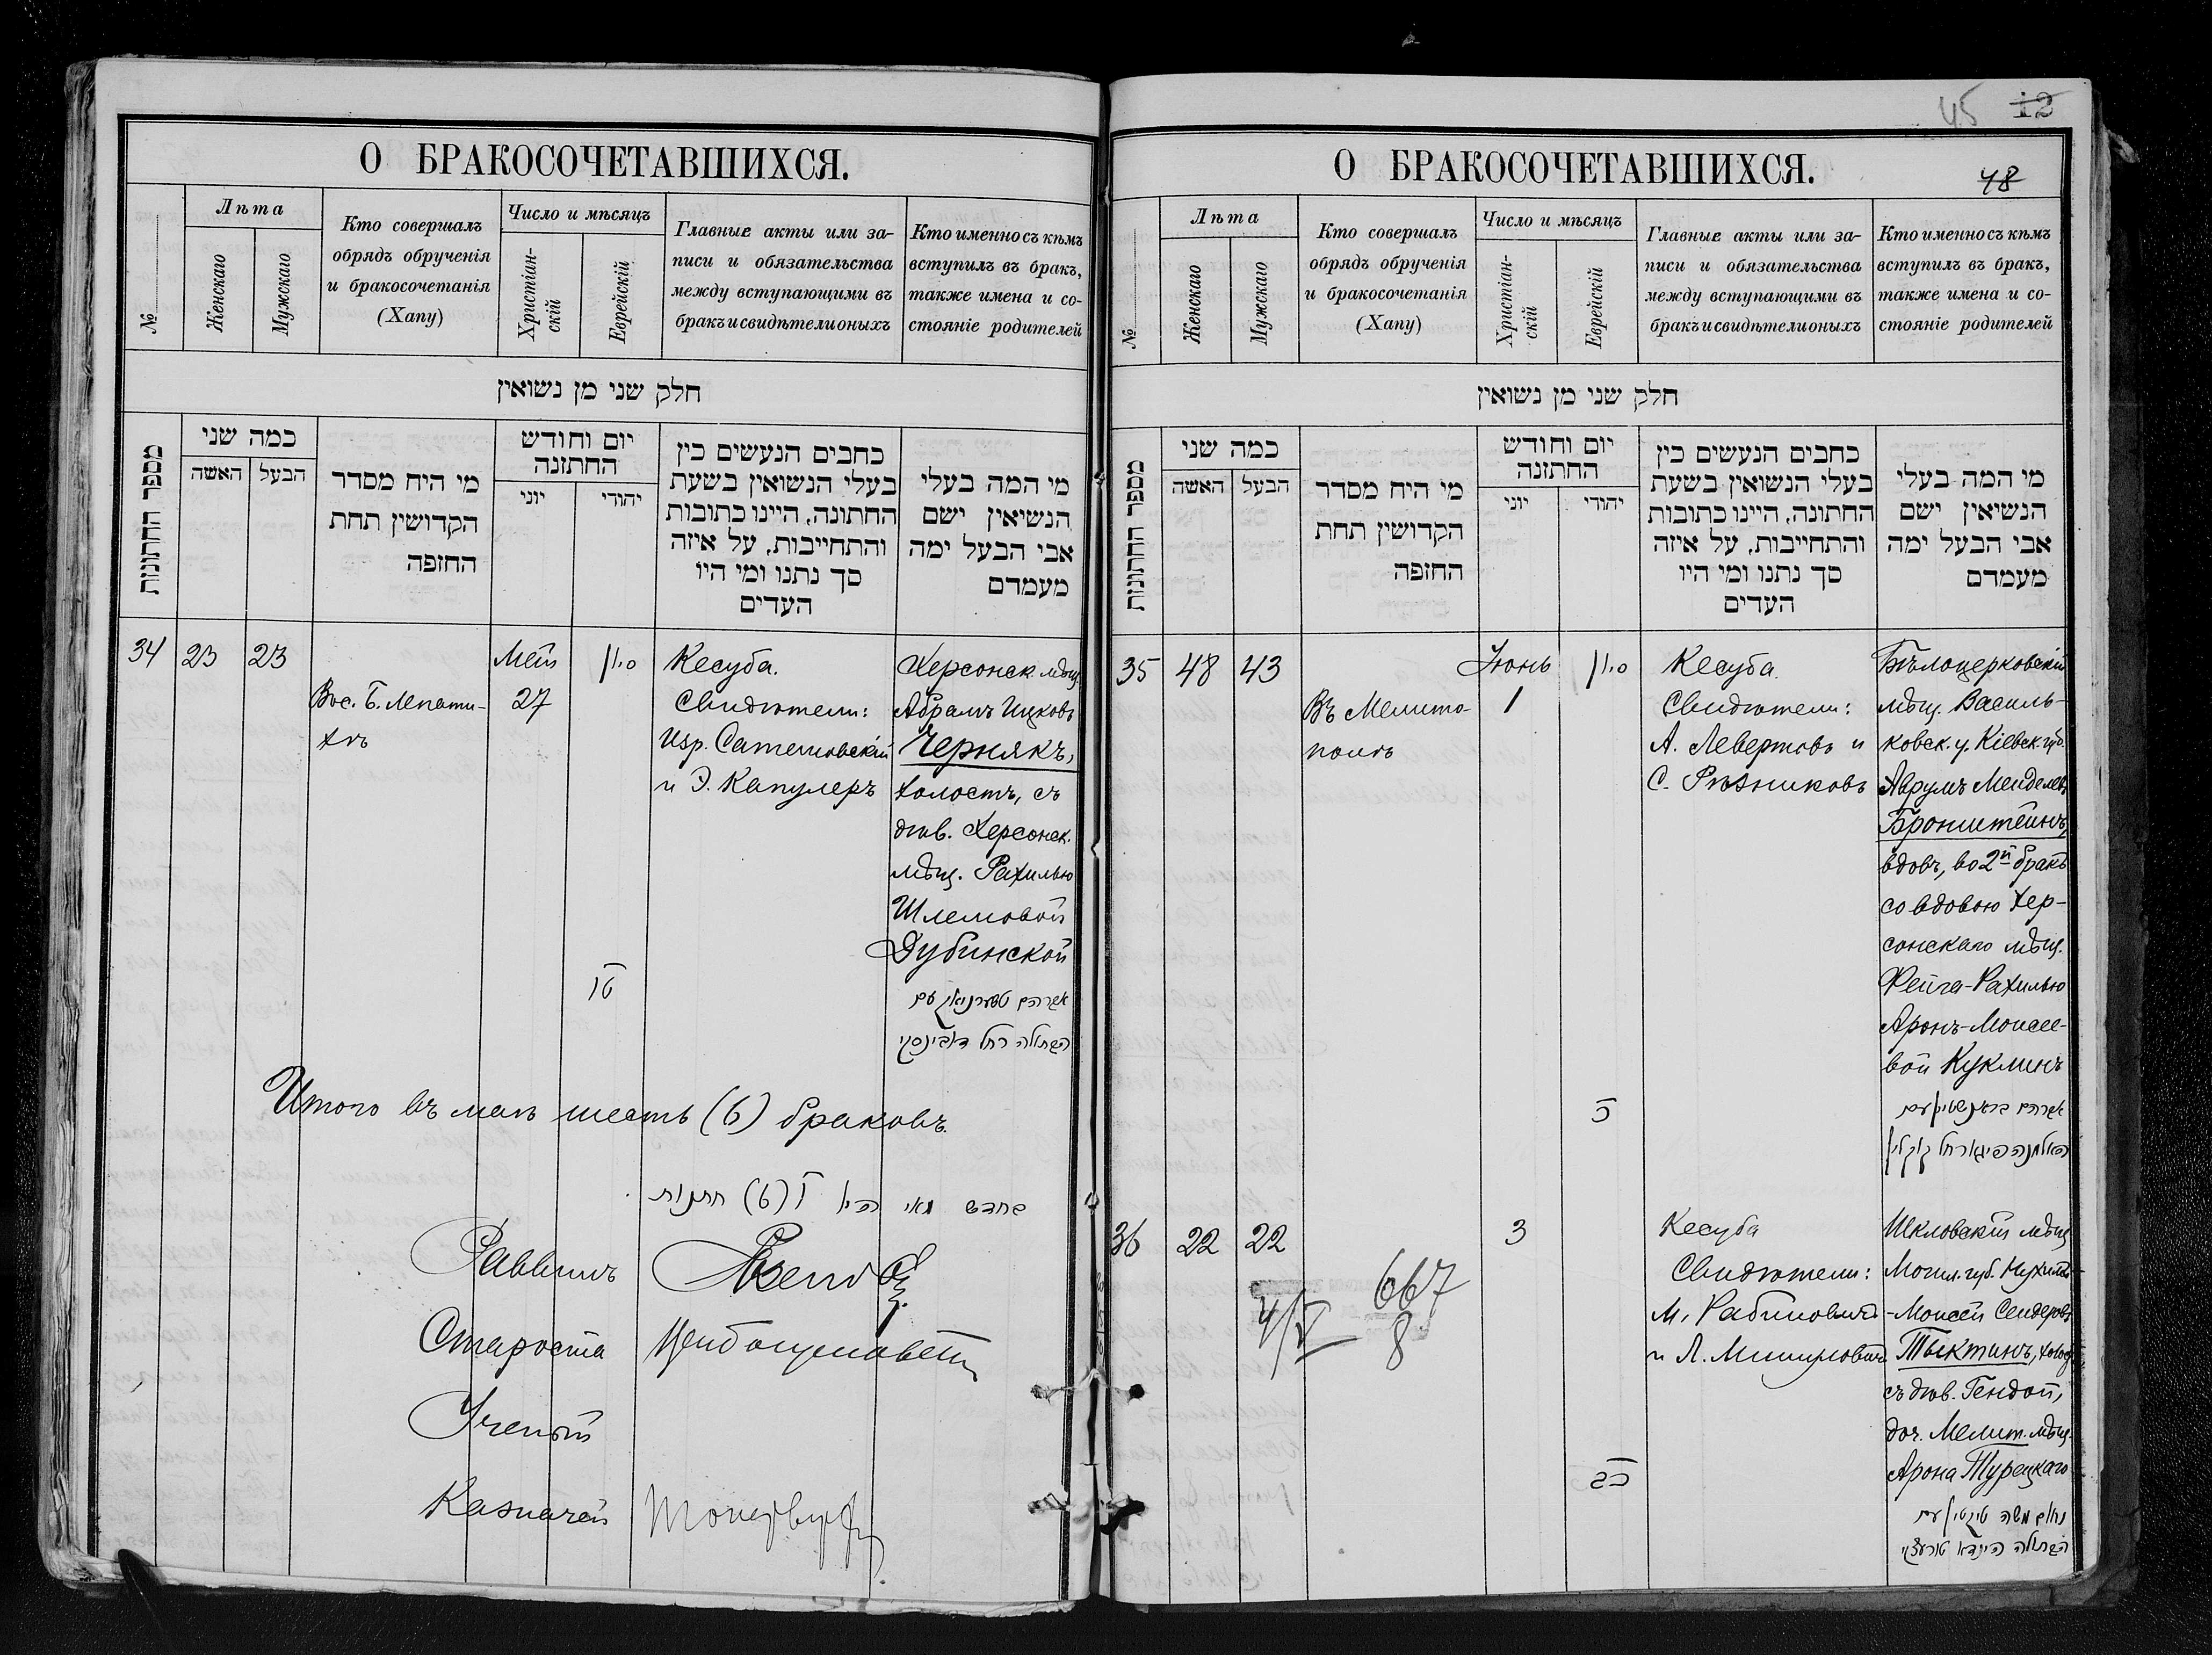 45 12
О БРАКОСОЧЕТАВШИХСЯ.
№
Лѣта
Женскаго
Мужскаго
Кто совершалъ
обрядъ обрученія
и бракосочетанія
(Хапу)
Число и мѣсяцъ
Христіан-
скій
Еврейскій
Главные акты или за-
писи и обязательства
между вступающими въ
бракъ и свидѣтели оныхъ
Кто именно съ кѣмъ
вступилъ въ бракъ,
также имена и со-
стояніе родителей
חלק שני מן נשואין
מספר החתונות
כמה שני
האשה
הבעל
מי היח מסדר
הקדושין תחת
החופה
יום וחודש
החתונה
יוני
יהודי
כחבים הנעשים כין
בעלי הנשואין בשעת
החתונה, היינו כתובות
והתחייבות, על איזה
סך נתנו ומי היו
העדים
מי המה בעלי
הנשיאין ישם
אבי הבעל ימה
מעמדם
34
23
23
Вос. Б. Лепати-
хѣ
Май
27
סיון
טו
Кесуба.
Свидѣтели:
Изр.
и Э. Капулеръ
Херсонск. мѣщ.
Абрамъ Ицковъ
Чернякъ,
холостъ, съ
дѣв. Херсонск.
мѣщ. Рахилью
Шлемовой
Дубинской
אברהם טשערניאק עם
הבתולה רחל דובינסקי
Итого въ маѣ шесть (6) браковъ.
בחדש מאי היו ו (6) חתנות
Раввинъ
Староста
Ученый
Казначей
О БРАКОСОЧЕТАВШИХСЯ.
48
№
Лѣта
Женскаго
Мужскаго
Кто совершалъ
обрядъ обрученія
и бракосочетанія
(Хапу)
Число и мѣсяцъ
Христіан-
скій
Еврейскій
Главные акты или за-
писи и обязательства
между вступающими въ
бракъ и свидѣтели оныхъ
Кто именно съ кѣмъ
вступилъ въ бракъ,
также имена и со-
стояніе родителей
חלק שני מן נשואין
מספר החתונות
כמה שני
האשה
הבעל
מי היח מסדר
הקדושין תחת
החופה
יום וחודש
החתונה
יוני
יהודי
כחבים הנעשים כין
בעלי הנשואין בשעת
החתונה, היינו כתובות
והתחייבות, על איזה
סך נתנו ומי היו
העדים
מי המה בעלי
הנשיאין ישם
אבי הבעל ימה
מעמדם
35
48
43
Въ Мелито-
полѣ
Іюнь
1
סיון
כ
Кесуба
Свидѣтели:
А. Левертовъ и
С. Рѣзниковъ
Бѣлоцерковскій
мѣщ. Василь-
ковск. у. Кіевск. губ.
Аврумъ Менделевъ
Бронштейнъ,
вдовъ, во 2й бракъ
со вдовою Хер-
сонскаго мѣщ.
Фейга-Рахилью
Аронъ-Моисее-
вой Куклинъ
אברהם בראנשטיין עם
האלמנה פייגא רחל קוקלין
36
22
22
4/V
667
8
3
כב
Кесуба
Свидѣтели:
М. Рабиновичъ
и Л.
Шкловскій мѣщ.
Могил. губ.
-Моисей Сендеровъ
Тыктинъ, холос.
съ дѣв. Гендой,
доч. Мелит. мѣщ.
Арона Турецкаго
נחום משה טיקטין עם
הבתולה הינדא טורעצקי